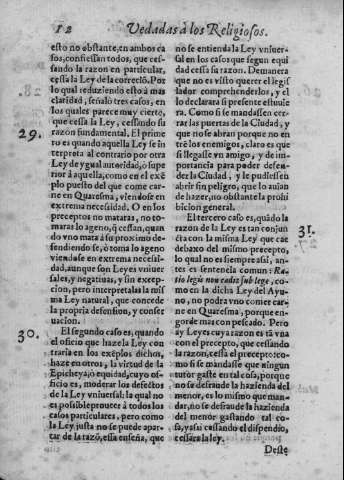 12 Vedadas à los Religiosos.
esto no obstante, en ambos ca
sos, confiessan todos, que ces-
sando la razon en particular,
cessa la Ley de la correcciõ. Por
lo qual reduziendo esto à mas
claridad, señalo tres casos, en
los quales parece muy cierto,
que cessa la Ley, cessando su
29. razon fundamental. El prime
ro es quando aquella Ley se in
terpreta al contrario por otra
Ley de ygual autoridad, ò supe
rior à aquella, como en el exẽ
plo puesto del que come car-
ne en Quaresma, viendose en
extrema necessidad. O en los
preceptos no mataras, no to-
maras lo ageno, q̃ cessan, quan
do vno mata à su proximo de-
fendiendose, ò toma lo ageno
viendose en extrema necessi-
dad, aunque son Leyes vniuer
sales, y negatiuas, y sin excep-
cion, pero interpretalas la mis
ma Ley natural, que concede
la propria defension, y conser
uacion.
30. El segundo caso es, quando
el oficio que haze la Ley con
traria en los exẽplos dichos,
haze en otros, la virtud de la
Epicheya, ò equidad, cuyo ofi-
cio es, moderar los defectos
de la Ley vniuersal: la qual no
es possible proueer à todos los
casos particulares, pero como
la Ley justa no se puede apar-
tar de la razõ, essa enseña, que
no se entienda la Ley vniuer-
sal en los casos que segun equi
dad cessa su razon. Demanera
que no es visto querer el legis
lador comprehenderlos, y el
lo declarara si presente estuuie
ra. Como si se mandassen cer-
rar las puertas de la Ciudad, y
que no se abran porque no en
trẽ los enemigos, claro es que
si se llegasse vn amigo, y de im-
portancia para poder defen-
der la Ciudad, y le pudiessen
abrir sin peligro, que lo auian
de hazer, no obstante la prohi
bicion general.
El tercero caso es, quãdo la
31. razon de la Ley es tan conjun
cta con la misma Ley que cae
debaxo del mismo precepto,
lo qual no es siempre assi, an-
tes es sentencia comun: Ra-
tio legis non cadit sub lege, co-
mo en la dicha Ley del Ayu-
no, no podrà vno comer car-
ne en Quaresma, porque en-
gorde mas con pescado. Pero
ay Leyes cuya razon està vna
con el precepto, que cessando
la razon, cessa el precepto: co-
mo si se mandasse que ningun
tutor gaste en tal cosa, porque
no se defraude la hazienda del
menor, es lo mismo que man-
dar, no se defraude la hazienda
del menor gastando tal co-
sa, y assi cessando el dispendio,
cessarà la ley.
Deste